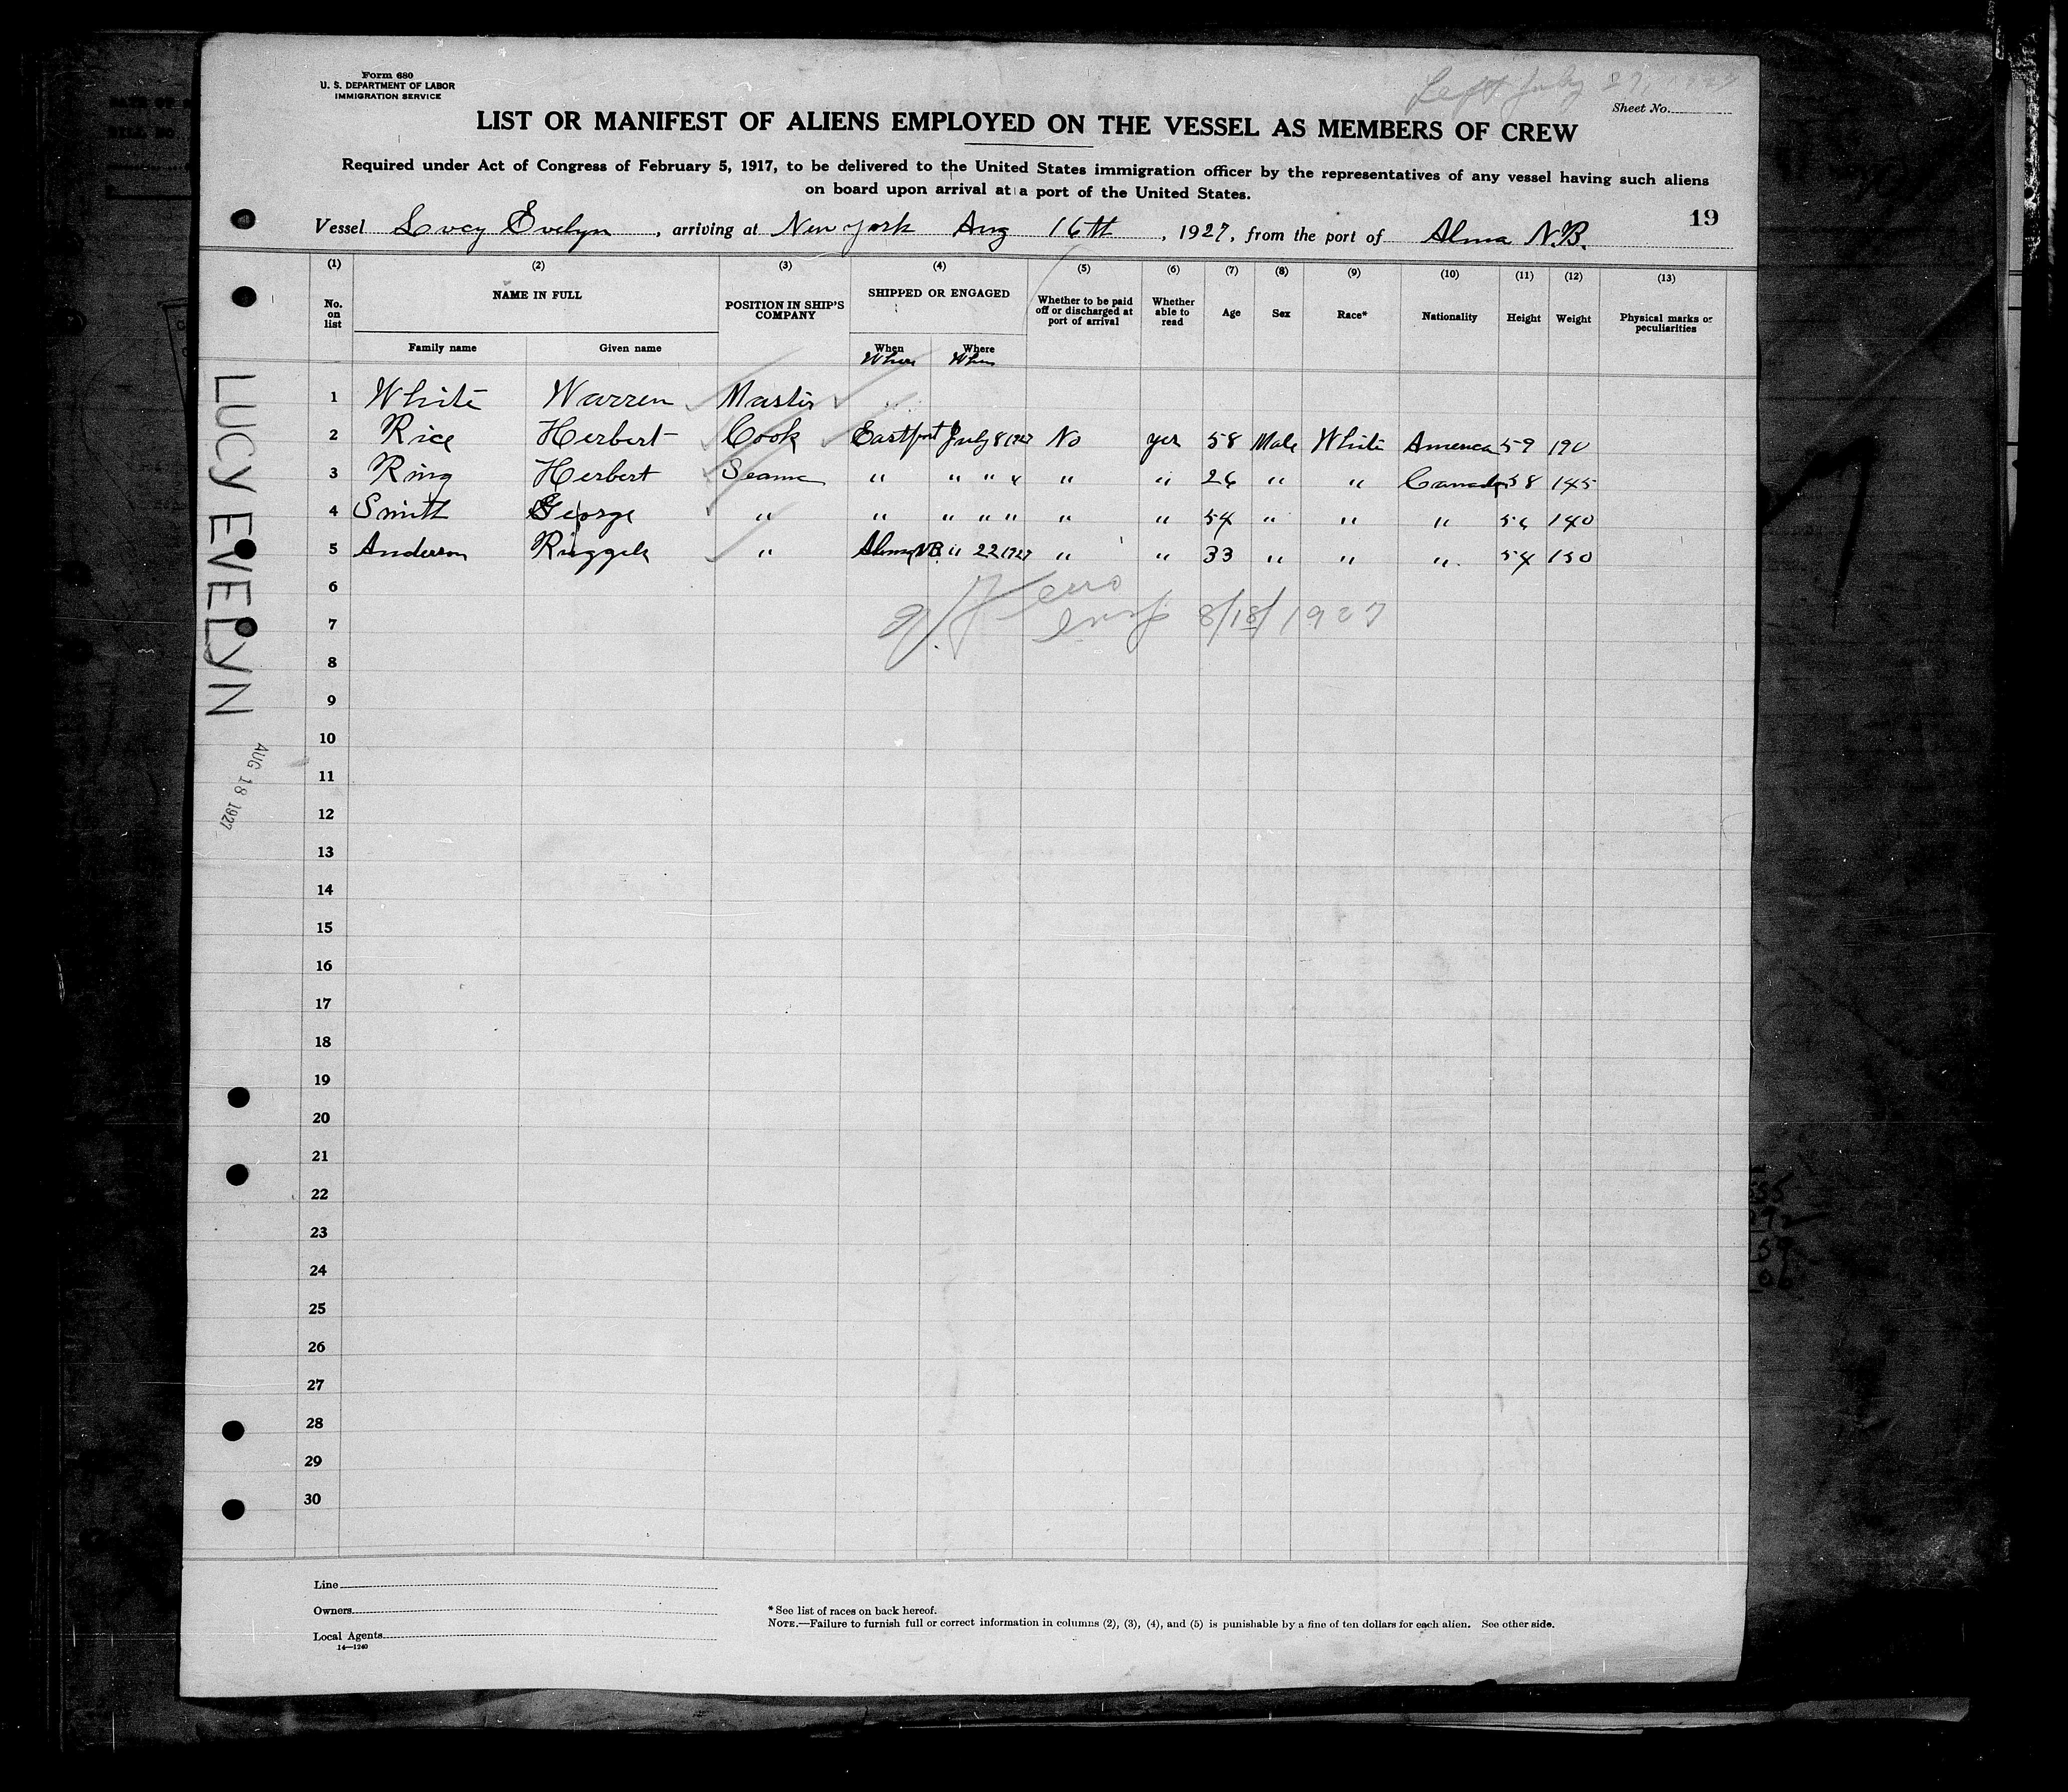 Form 680
U. S. DEPARTMENT OF LABOR
IMMIGRATION SERVICE
Left July 27, 1927
Sheet No.
LIST OR MANIFEST OF ALIENS EMPLOYED ON THE VESSEL AS MEMBERS OF CREW
Required under Act of Congress of February 5, 1917, to be delivered to the United States immigration officer by the representatives of any vessel having such aliens
on board upon arrival at a port of the United States.
19
Vessel Lucy Evelyn, arriving at New York Aug 16th, 1927, from the port of Alma N.B.
(1) (2) (3) (4) (5) (6) (7) (8) (9) (10) (11) (12) (13)
No. on list NAME IN FULL POSITION IN SHIP'S COMPANY SHIPPED OR ENGAGED Whether to be paid off or discharged at port of arrival Whether able to read Age Sex Race* Nationality Height Weight Physical marks or peculiarities
Family name Given name When Where
Where When
1 White Warren Master
2 Rice Herbert Cook Eastport July 8 1927 No yes 58 Male White America 59 190
3 Ring Herbert Seama " " " " " " 26 " " Canada 58 145
4 Smith George " " " " " " " 54 " " " 56 140
5 Anderson Ruggels " Alma NB. " 22 1927 " " 33 " " " 54 150
6
7
insp 8/18/1927
8
9
10
11
12
13
14
15
16
17
18
19
20
21
22
23
24
25
26
27
28
29
30
LUCY EVELYN
AUG 18 1927
Line
Owners
Local Agents
14—1240
* See list of races on back hereof.
NOTE.—Failure to furnish full or correct information in columns (2), (3), (4), and (5) is punishable by a fine of ten dollars for each alien. See other side.